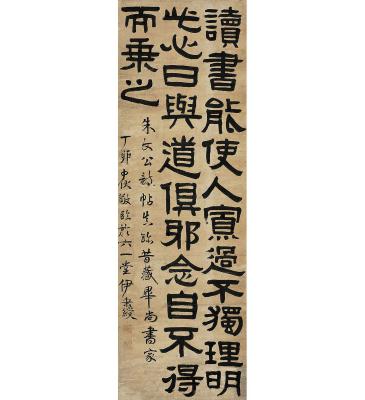 讀書能使人寡過不獨理明
此心日與道俱邪念自不得
而乘之
朱文公論帖真跡昔藏畢尚書家
丁卯中秋敬臨於六一堂伊秉綬